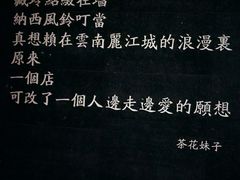 藏玲結綴在牆
納西風鈴叮當
真想賴在雲南麗江城的浪漫裏
原來
一個店
可改了一個人邊走邊愛的願想
茶花妹子